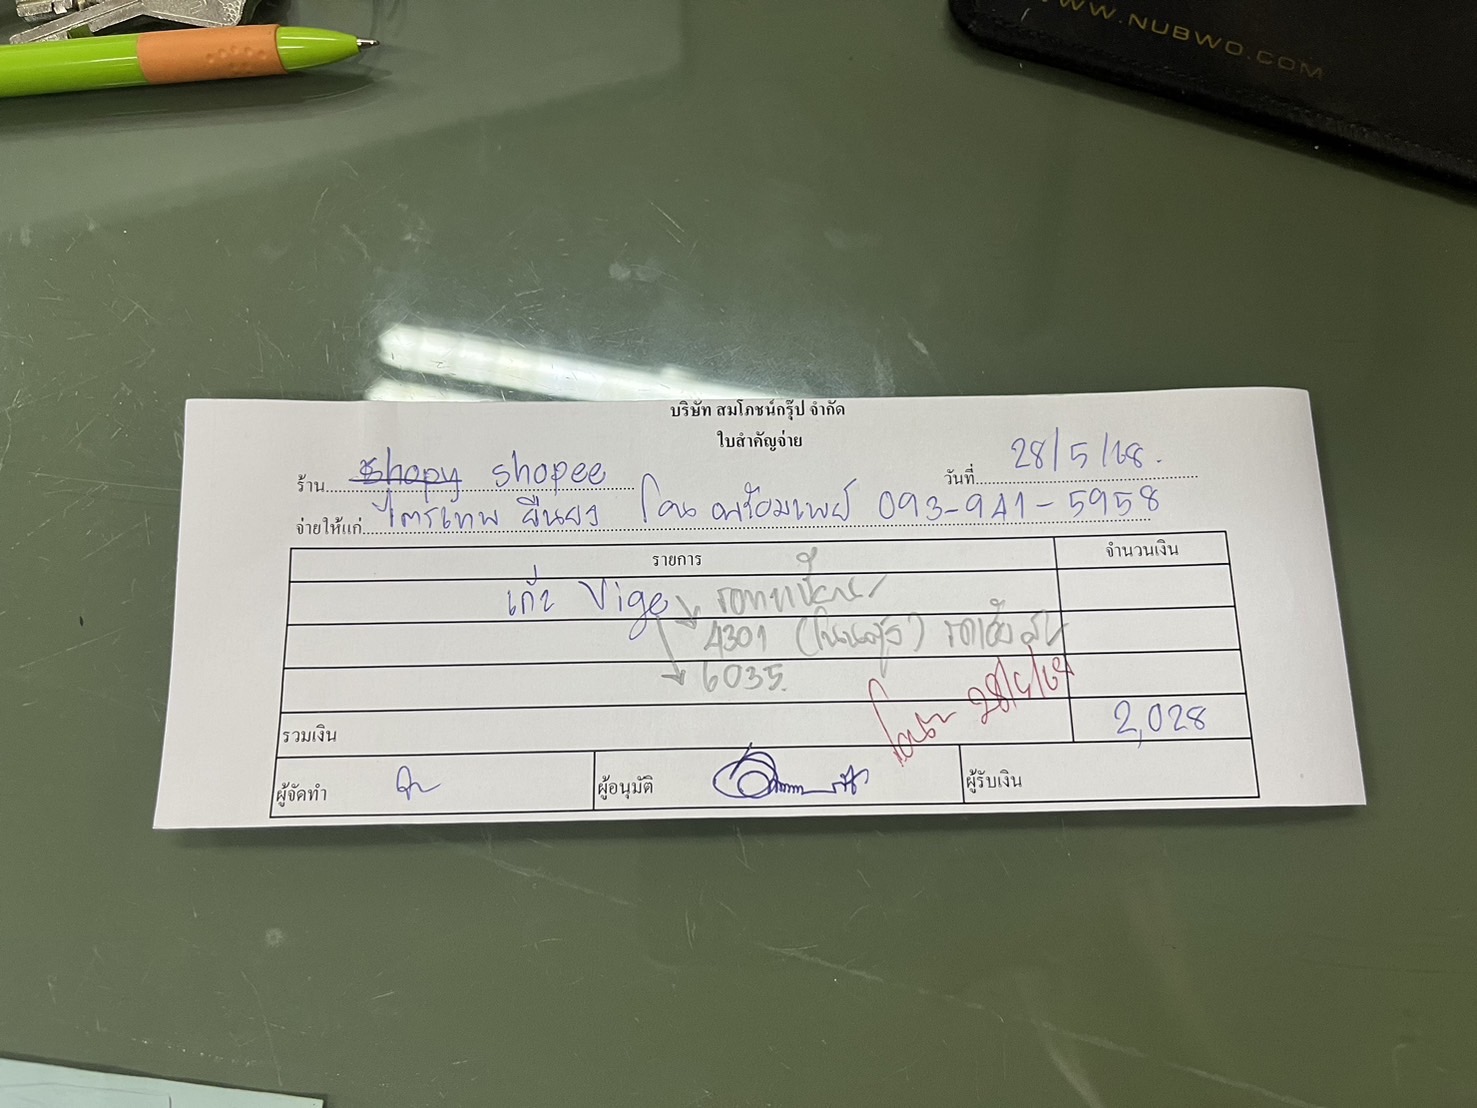 WWW.NUBWO.COM
บริษัท สมโภชน์กรุ๊ป จำกัด
ใบสำคัญจ่าย
ร้าน shopy shopee วันที่ 28/5/68.
จ่ายให้แก่ ไตรเทพ ยืนยง โอน พร้อมเพย์ 093-941-5958
รายการ จำนวนเงิน
เก้า Vige
4301
6035.
รวมเงิน 2,028
ผู้จัดทำ ผู้อนุมัติ ผู้รับเงิน